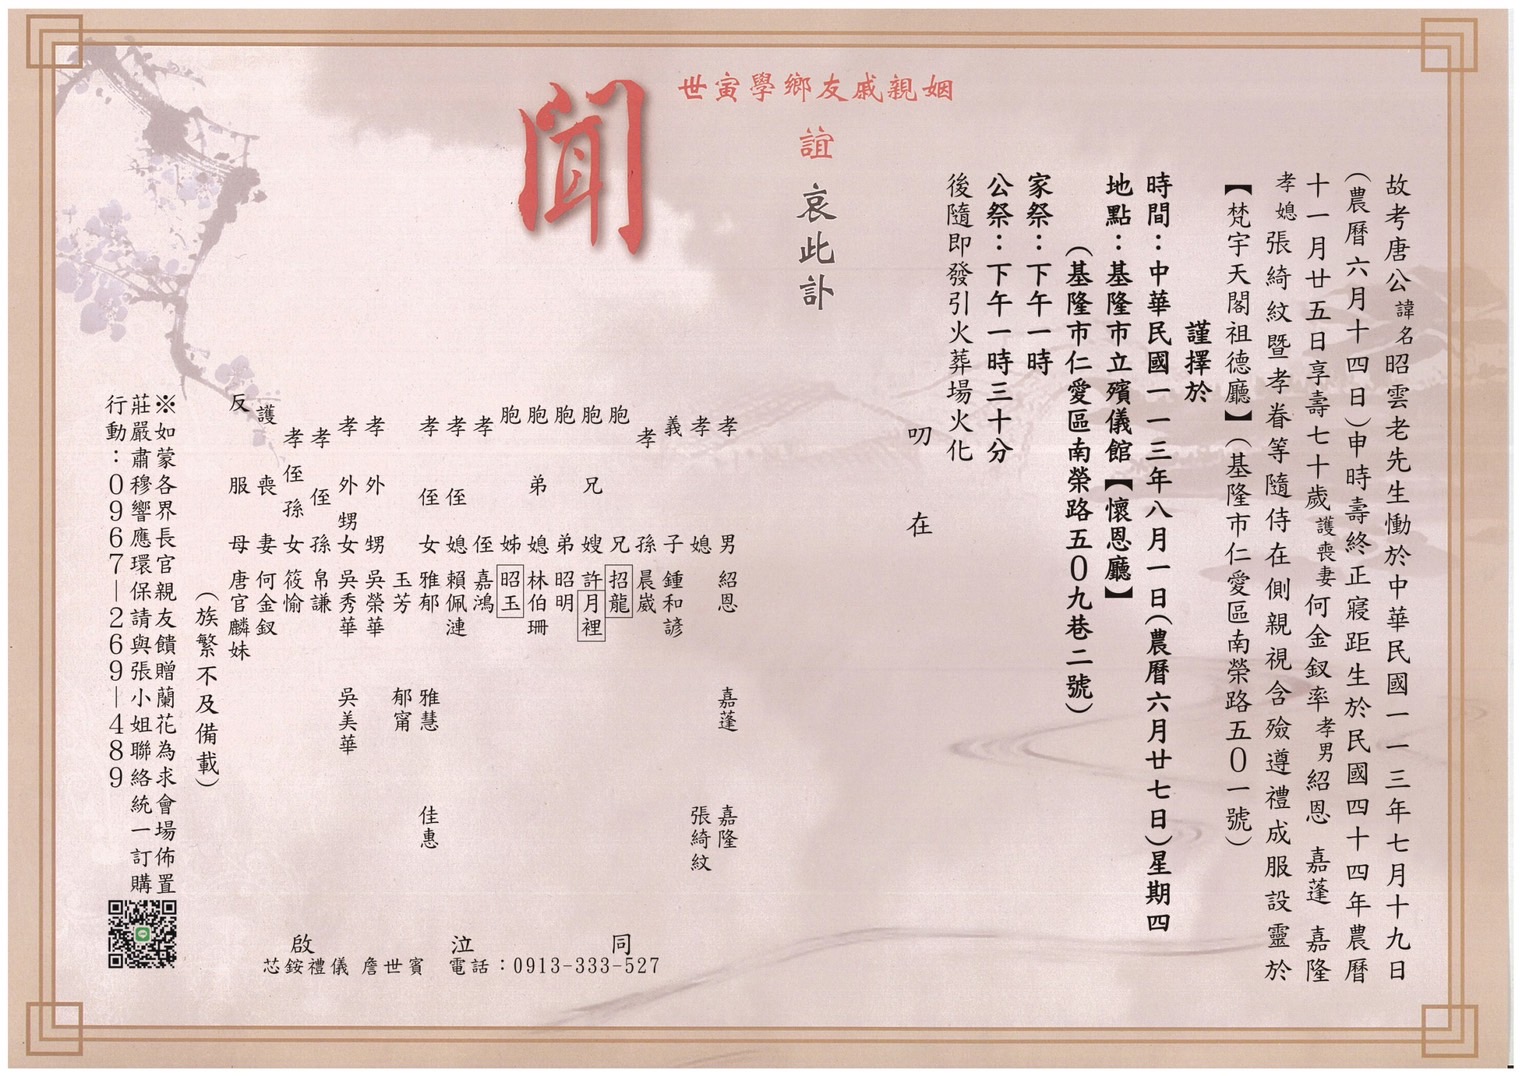 故考唐公諱名昭雲老先生慟於中華民國一一三年七月十九日
(農曆六月十四日)申時壽終正寢距生於民國四十四年農曆
十一月廿五日享壽七十歲護喪妻何金釵率孝男紹恩 嘉蓬 嘉隆
孝媳張綺紋暨孝眷等隨侍在側親視含殮遵禮成服設靈於
【梵宇天閣祖德廳】(基隆市仁愛區南榮路五0一號)
謹擇於
時間:中華民國一一三年八月一日(農曆六月廿七日)星期四
地點:基隆市立殯儀館【懷恩廳】
(基隆市仁愛區南榮路五0九巷二號)
家祭:下午一時
公祭:下午一時三十分
後隨即發引火葬場火化
叨 在
姻親戚友鄉學寅世
誼 哀此訃
聞
孝男 紹恩 嘉蓬 嘉隆
孝媳 張綺紋
義子 鍾和諺
孝孫 晨崴
胞兄 招龍
胞兄嫂 許月裡
胞弟 昭明
胞弟媳 林伯珊
胞姊 昭玉
孝侄 嘉鴻
孝侄媳 賴佩漣
孝侄女 雅郁 雅慧 佳惠
玉芳 郁甯
孝外甥 吳榮華
孝外甥女 吳秀華 吳美華
孝侄孫 帛謙
孝侄孫女 筱愉
護喪妻 何金釵
反服母 唐官麟妹
同 泣 啟
(族繁不及備載)
※如蒙各界長官親友饋贈蘭花為求會場佈置
莊嚴肅穆響應環保請與張小姐聯絡統一訂購
行動:0967-269-489
芯銨禮儀 詹世賓 電話:0913-333-527